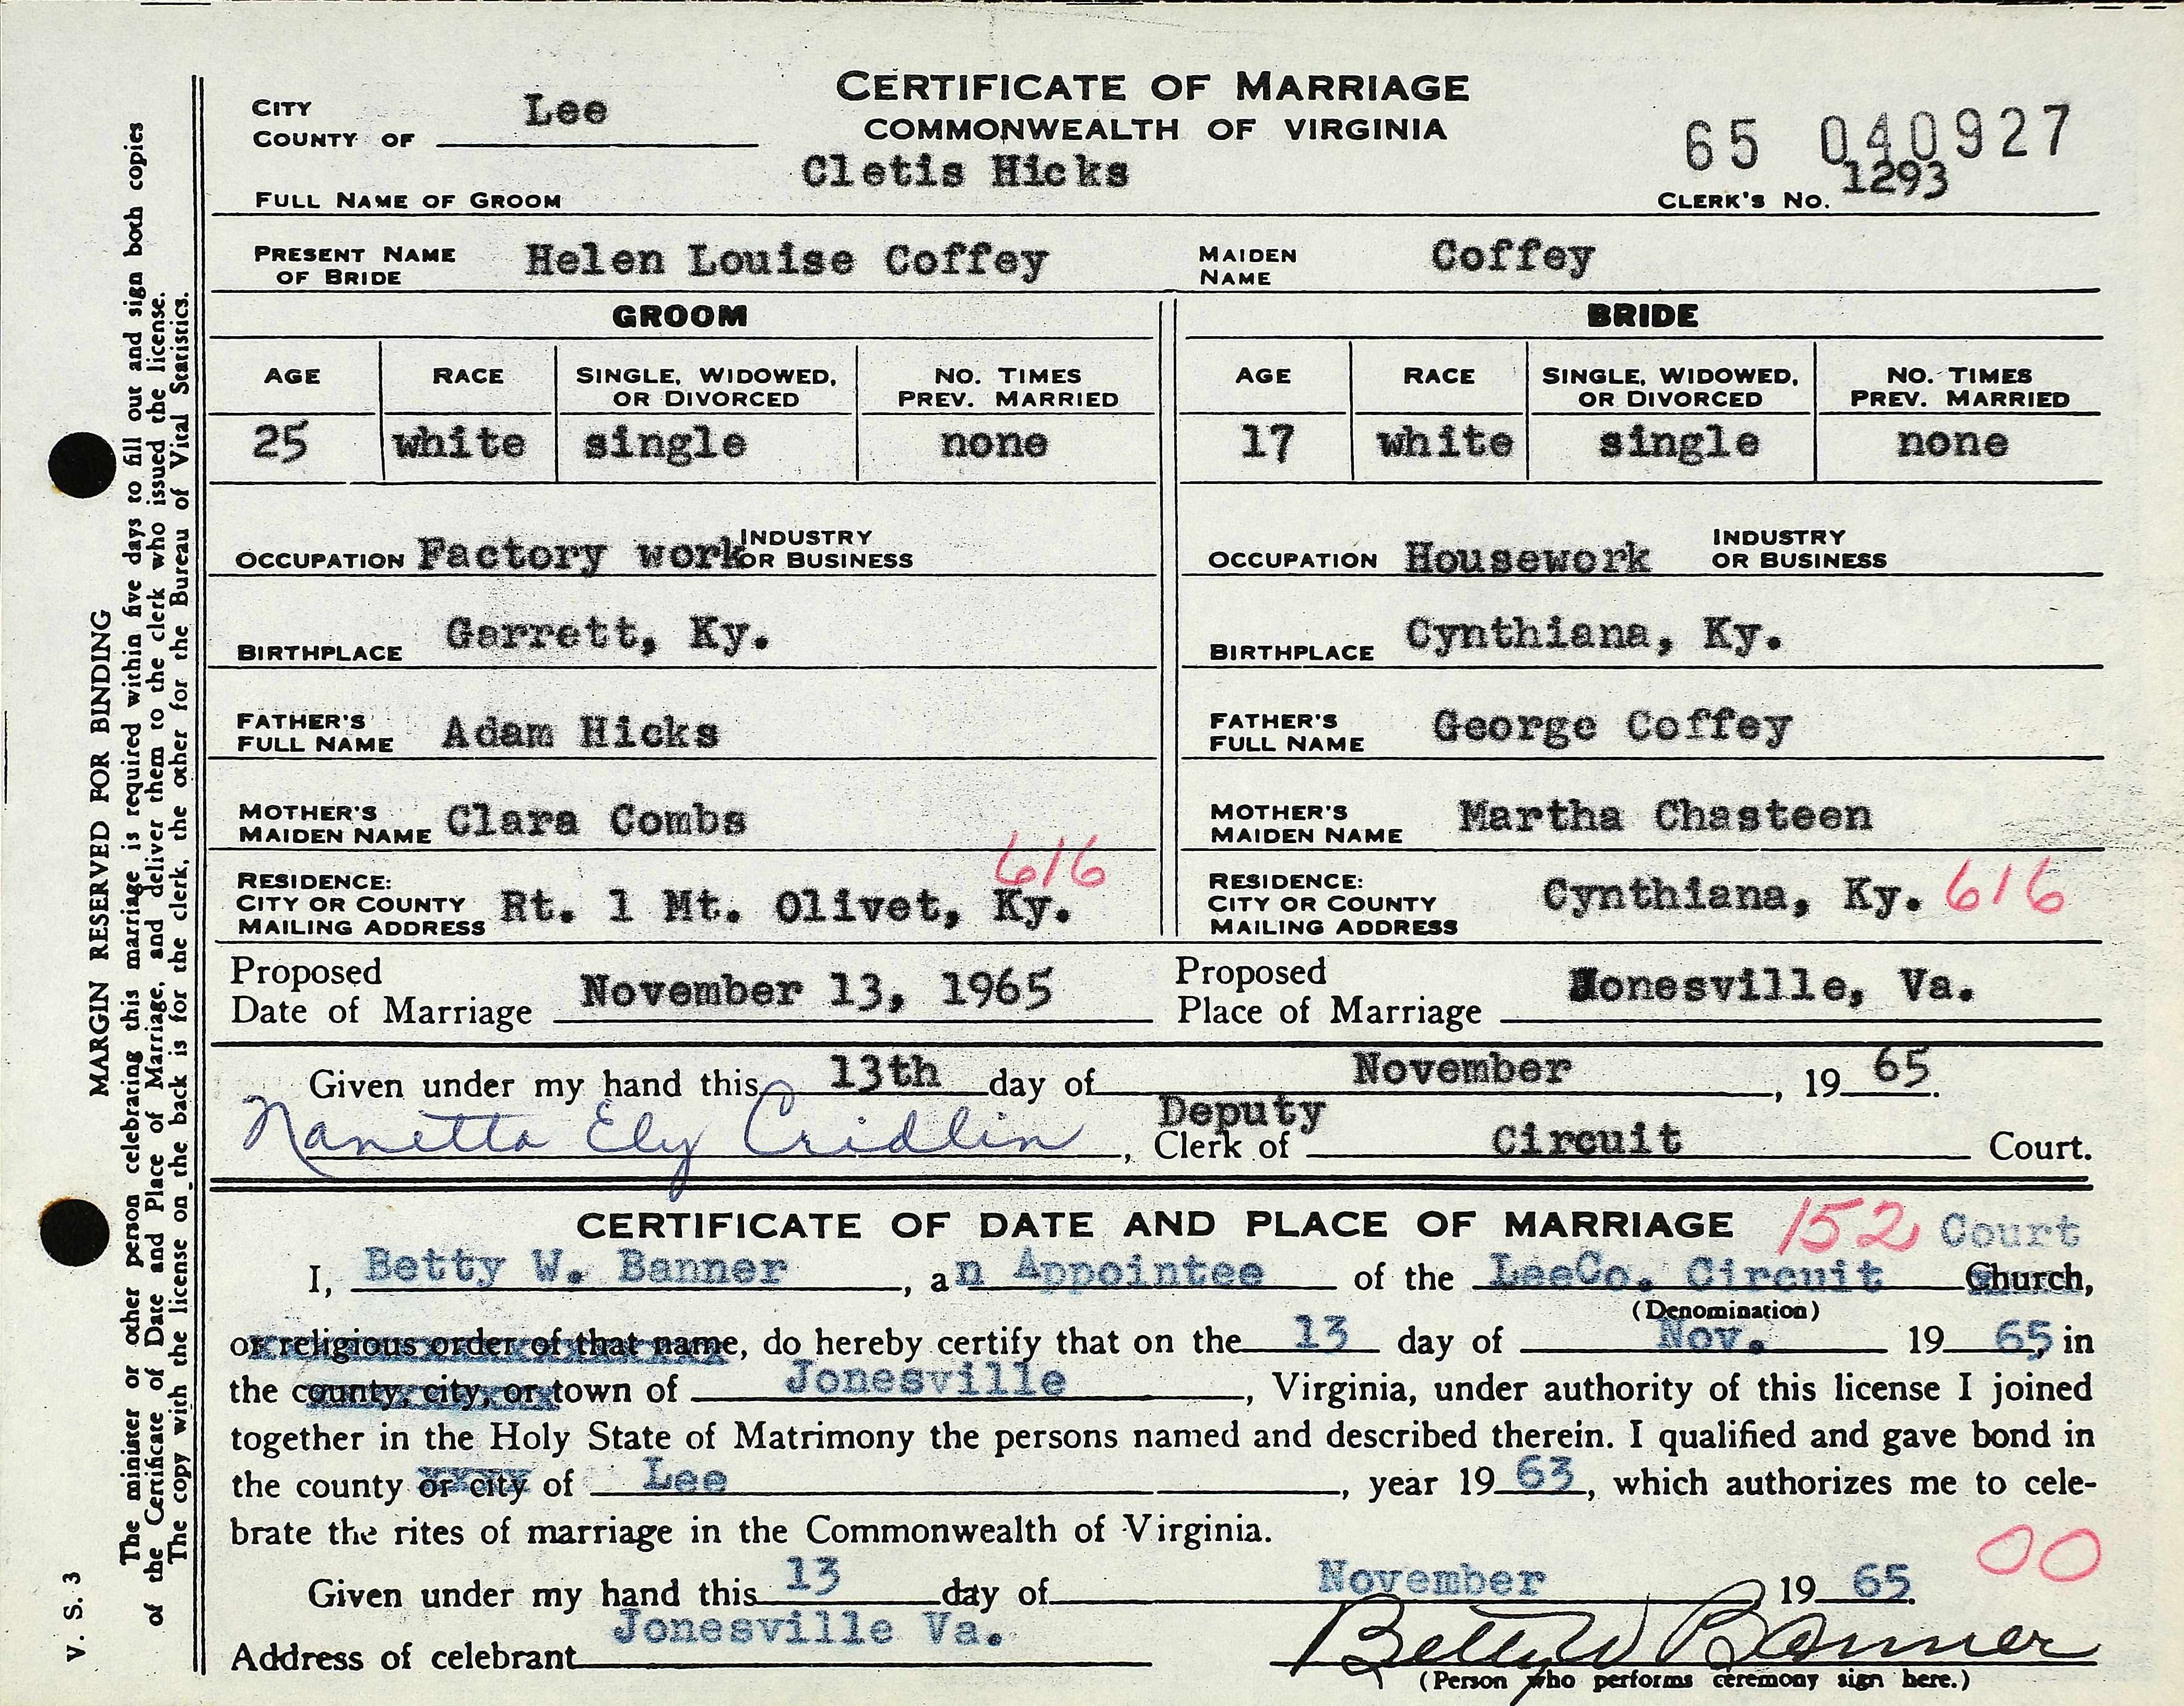 CERTIFICATE OF MARRIAGE
COMMONWEALTH OF VIRGINIA
CITY
COUNTY OF Lee
65 040927
FULL NAME OF GROOM Cletis Hicks CLERK'S NO. 1293
PRESENT NAME OF BRIDE Helen Louise Coffey MAIDEN NAME Coffey
GROOM BRIDE
AGE RACE SINGLE, WIDOWED, OR DIVORCED NO. TIMES PREV. MARRIED AGE RACE SINGLE, WIDOWED, OR DIVORCED NO. TIMES PREV. MARRIED
25 white single none 17 white single none
OCCUPATION Factory work INDUSTRY OR BUSINESS OCCUPATION Housework INDUSTRY OR BUSINESS
BIRTHPLACE Garrett, Ky. BIRTHPLACE Cynthiana, Ky.
FATHER'S FULL NAME Adam Hicks FATHER'S FULL NAME George Coffey
MOTHER'S MAIDEN NAME Clara Combs MOTHER'S MAIDEN NAME Martha Chasteen
RESIDENCE: CITY OR COUNTY MAILING ADDRESS Rt. 1 Mt. Olivet, Ky. 616 RESIDENCE: CITY OR COUNTY MAILING ADDRESS Cynthiana, Ky. 616
Proposed Date of Marriage November 13, 1965 Proposed Place of Marriage Jonesville, Va.
Given under my hand this 13th day of November, 19 65.
Nanetta Ely Cridlin, Deputy Clerk of Circuit Court.
CERTIFICATE OF DATE AND PLACE OF MARRIAGE 152 Court
I, Betty W. Banner, an Appointee of the LeeCo. Circuit Church,
(Denomination)
or religious order of that name, do hereby certify that on the 13 day of Nov. 19 65, in
the county, city, or town of Jonesville, Virginia, under authority of this license I joined
together in the Holy State of Matrimony the persons named and described therein. I qualified and gave bond in
the county or city of Lee, year 19 63, which authorizes me to cele-
brate the rites of marriage in the Commonwealth of Virginia.
00
Given under my hand this 13 day of November 19 65.
Address of celebrant Jonesville Va. Betty W Banner
(Person who performs ceremony sign here.)
MARGIN RESERVED FOR BINDING
The minister or other person celebrating this marriage is required within five days to fill out and sign both copies
of the Certificate of Date and Place of Marriage, and deliver them to the clerk who issued the license.
The copy with the license on the back is for the clerk, the other for the Bureau of Vital Statistics.
V. S. 3